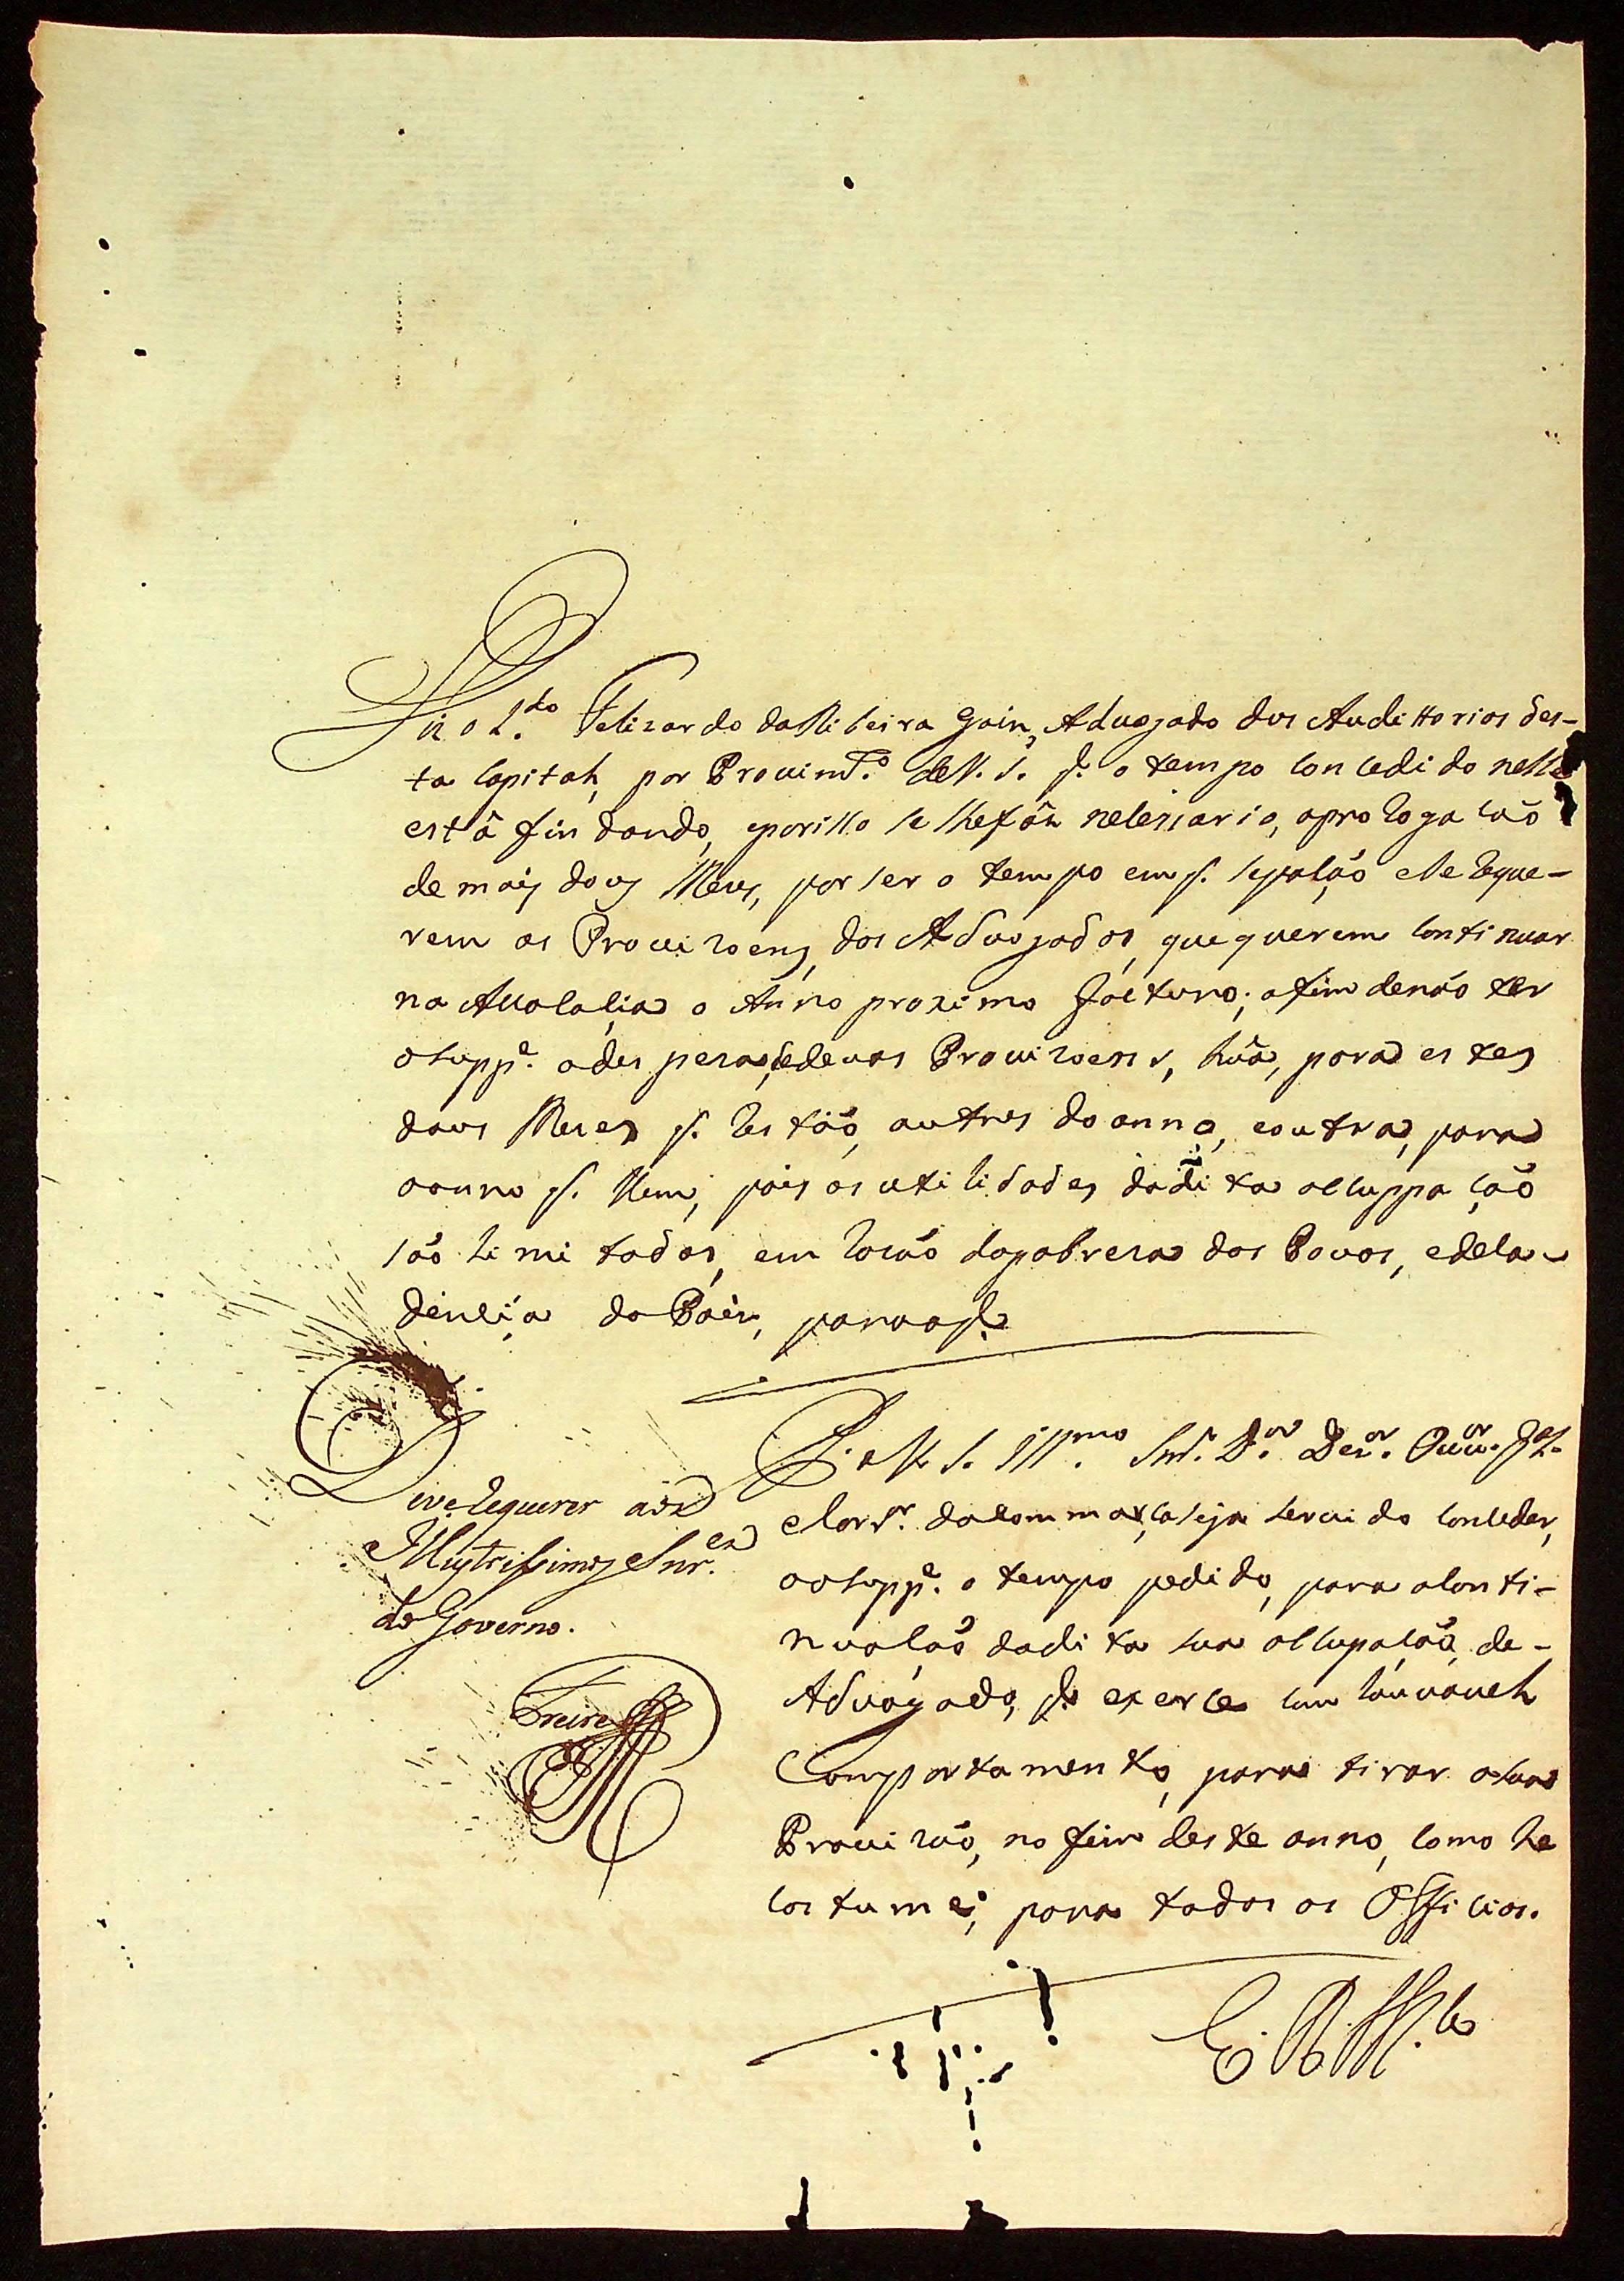 Diz o L.do Felizardo da Ribeira Goin, Aduogado dos Audittorios des-
ta Capitah, por Prouimt.o de V. S. q. o tempo concedido nelle
está findando, eporisso se lhe fáz necessario, aprorogação
de mais dous Mezes, por ser o tempo em q. sepasão e se reque-
rem as Prouizoens, dos Aduogados, que querem continuar
na Auocacia o Anno proximo fucturo; afim denão ter
osupp.e adespeza, dedeuas Prouizoens, huã, para estes
dous Mezes q. restão, autres do anno, eoutra, para
oanno q. Vem, pois as utilidades da dita occuppação
são limitadas, em rozão dapobreza dos Pouos, edeca-
dencia do Paîz, paraoq.
P. a V. S. Ill.mo Snr. D.or Dez.or Ouu.or G.al
e Corr.or dacommarca seja seruido conceder,
aosupp.e o tempo pedido, para aconti-
nuação dadita sua occupação, de-
Aduogado, q. exerce com louuaueh
Comportamento, para tirar asua
Prouizão, no fim deste anno, como he
costume, para todos os Officios.
E. R. M.ce
Deve requerer aos
Illustrissimos Snr.es
do Governo.
Freire